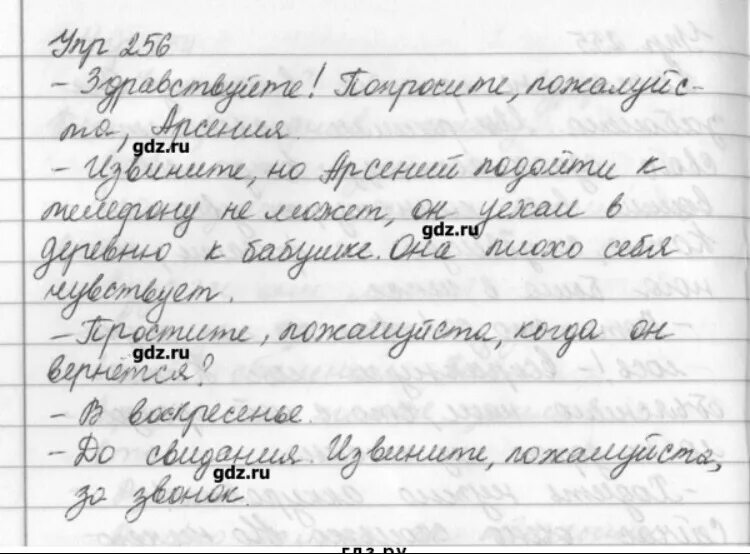 Упр 256
- Здравствуйте! Попросите, пожалуйс-
та, Арсения.
gdz.ru
- Извините, но Арсений подойти к
телефону не может, он уехал в
gdz.ru
деревню к бабушке. Она плохо себя
чувствует.
- Простите, пожалуйста, когда он
gdz.ru
вернётся?
- В воскресенье.
- До свидания. Извините, пожалуйста,
gdz.ru
за звонок.
гдз.ру